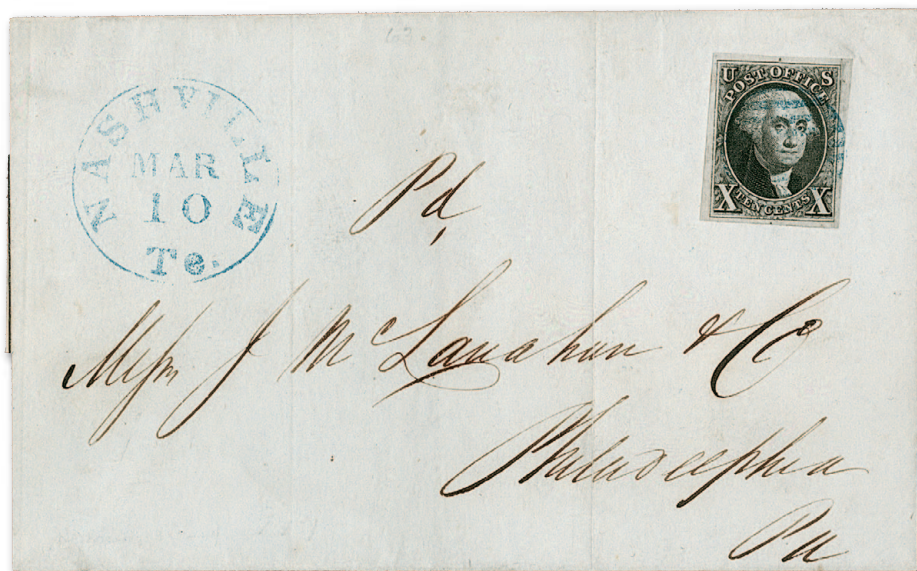 NASHVILLE
MAR
10
Te.
U S
POST OFFICE
X TEN CENTS X
Pd,
Messrs J McLanahan & Co
Philadelphia
Pa